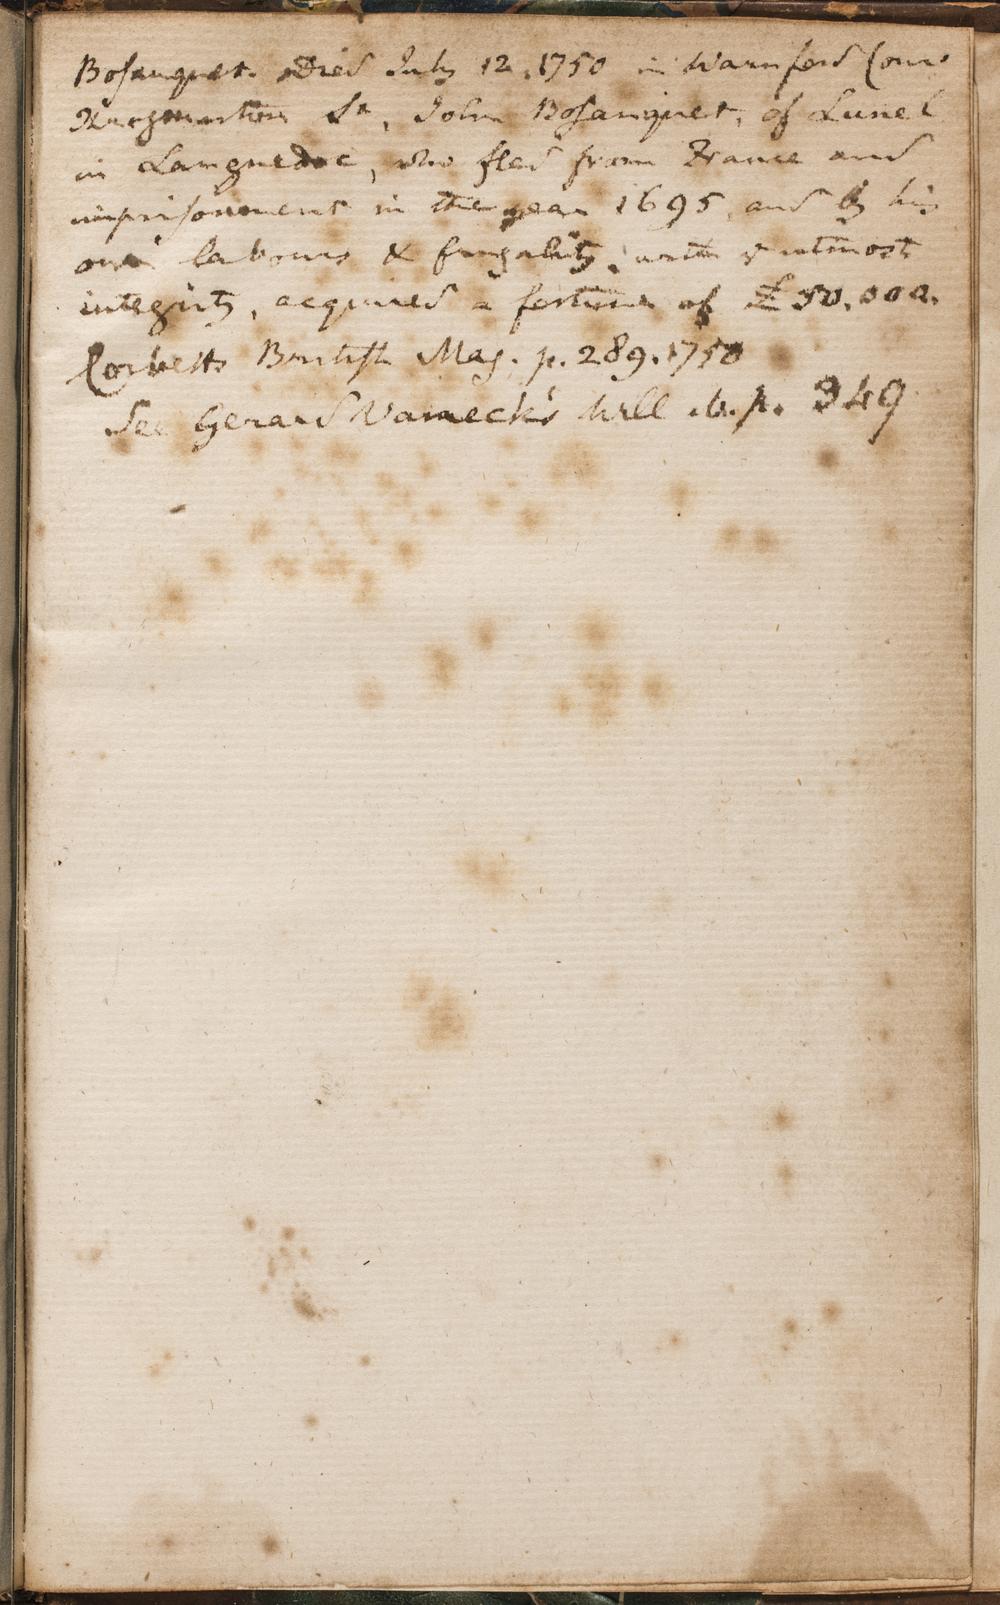 Bosanquet. Died July 12. 1750 in Warnford Cour
Throgmorton St, John Bosanquet, of Lunel
in Languedoc, who fled from France and
imprisonment in the year 1695, and by his
own labours & frugality, with ye utmost
integrity, acquired a fortune of £50,000.
Corbetts British Mag. p. 289. 1750
See Gerard Vanneck's Will ib. p. 349